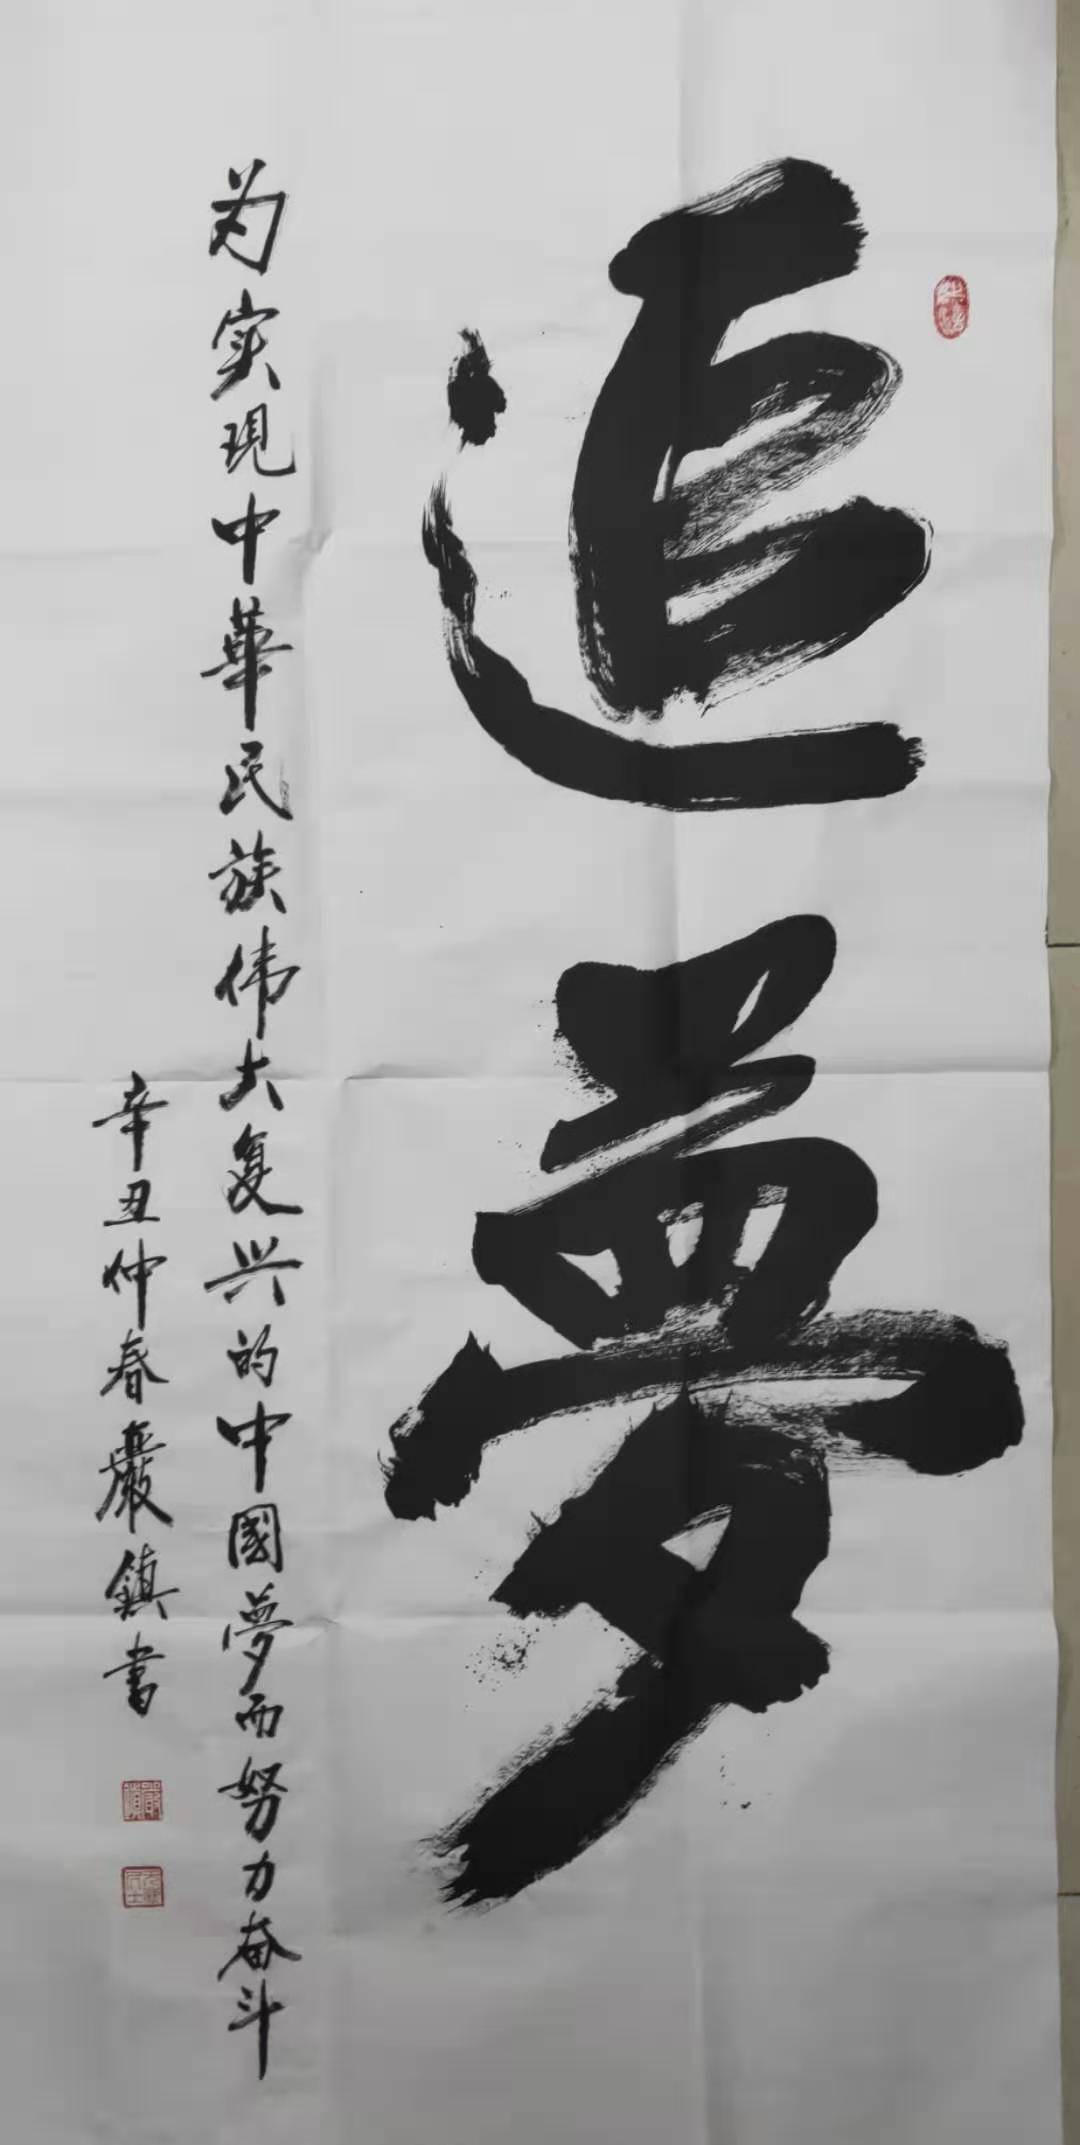 追夢
为实現中華民族伟大复兴的中國夢而努力奋斗
辛丑仲春嚴鎮書